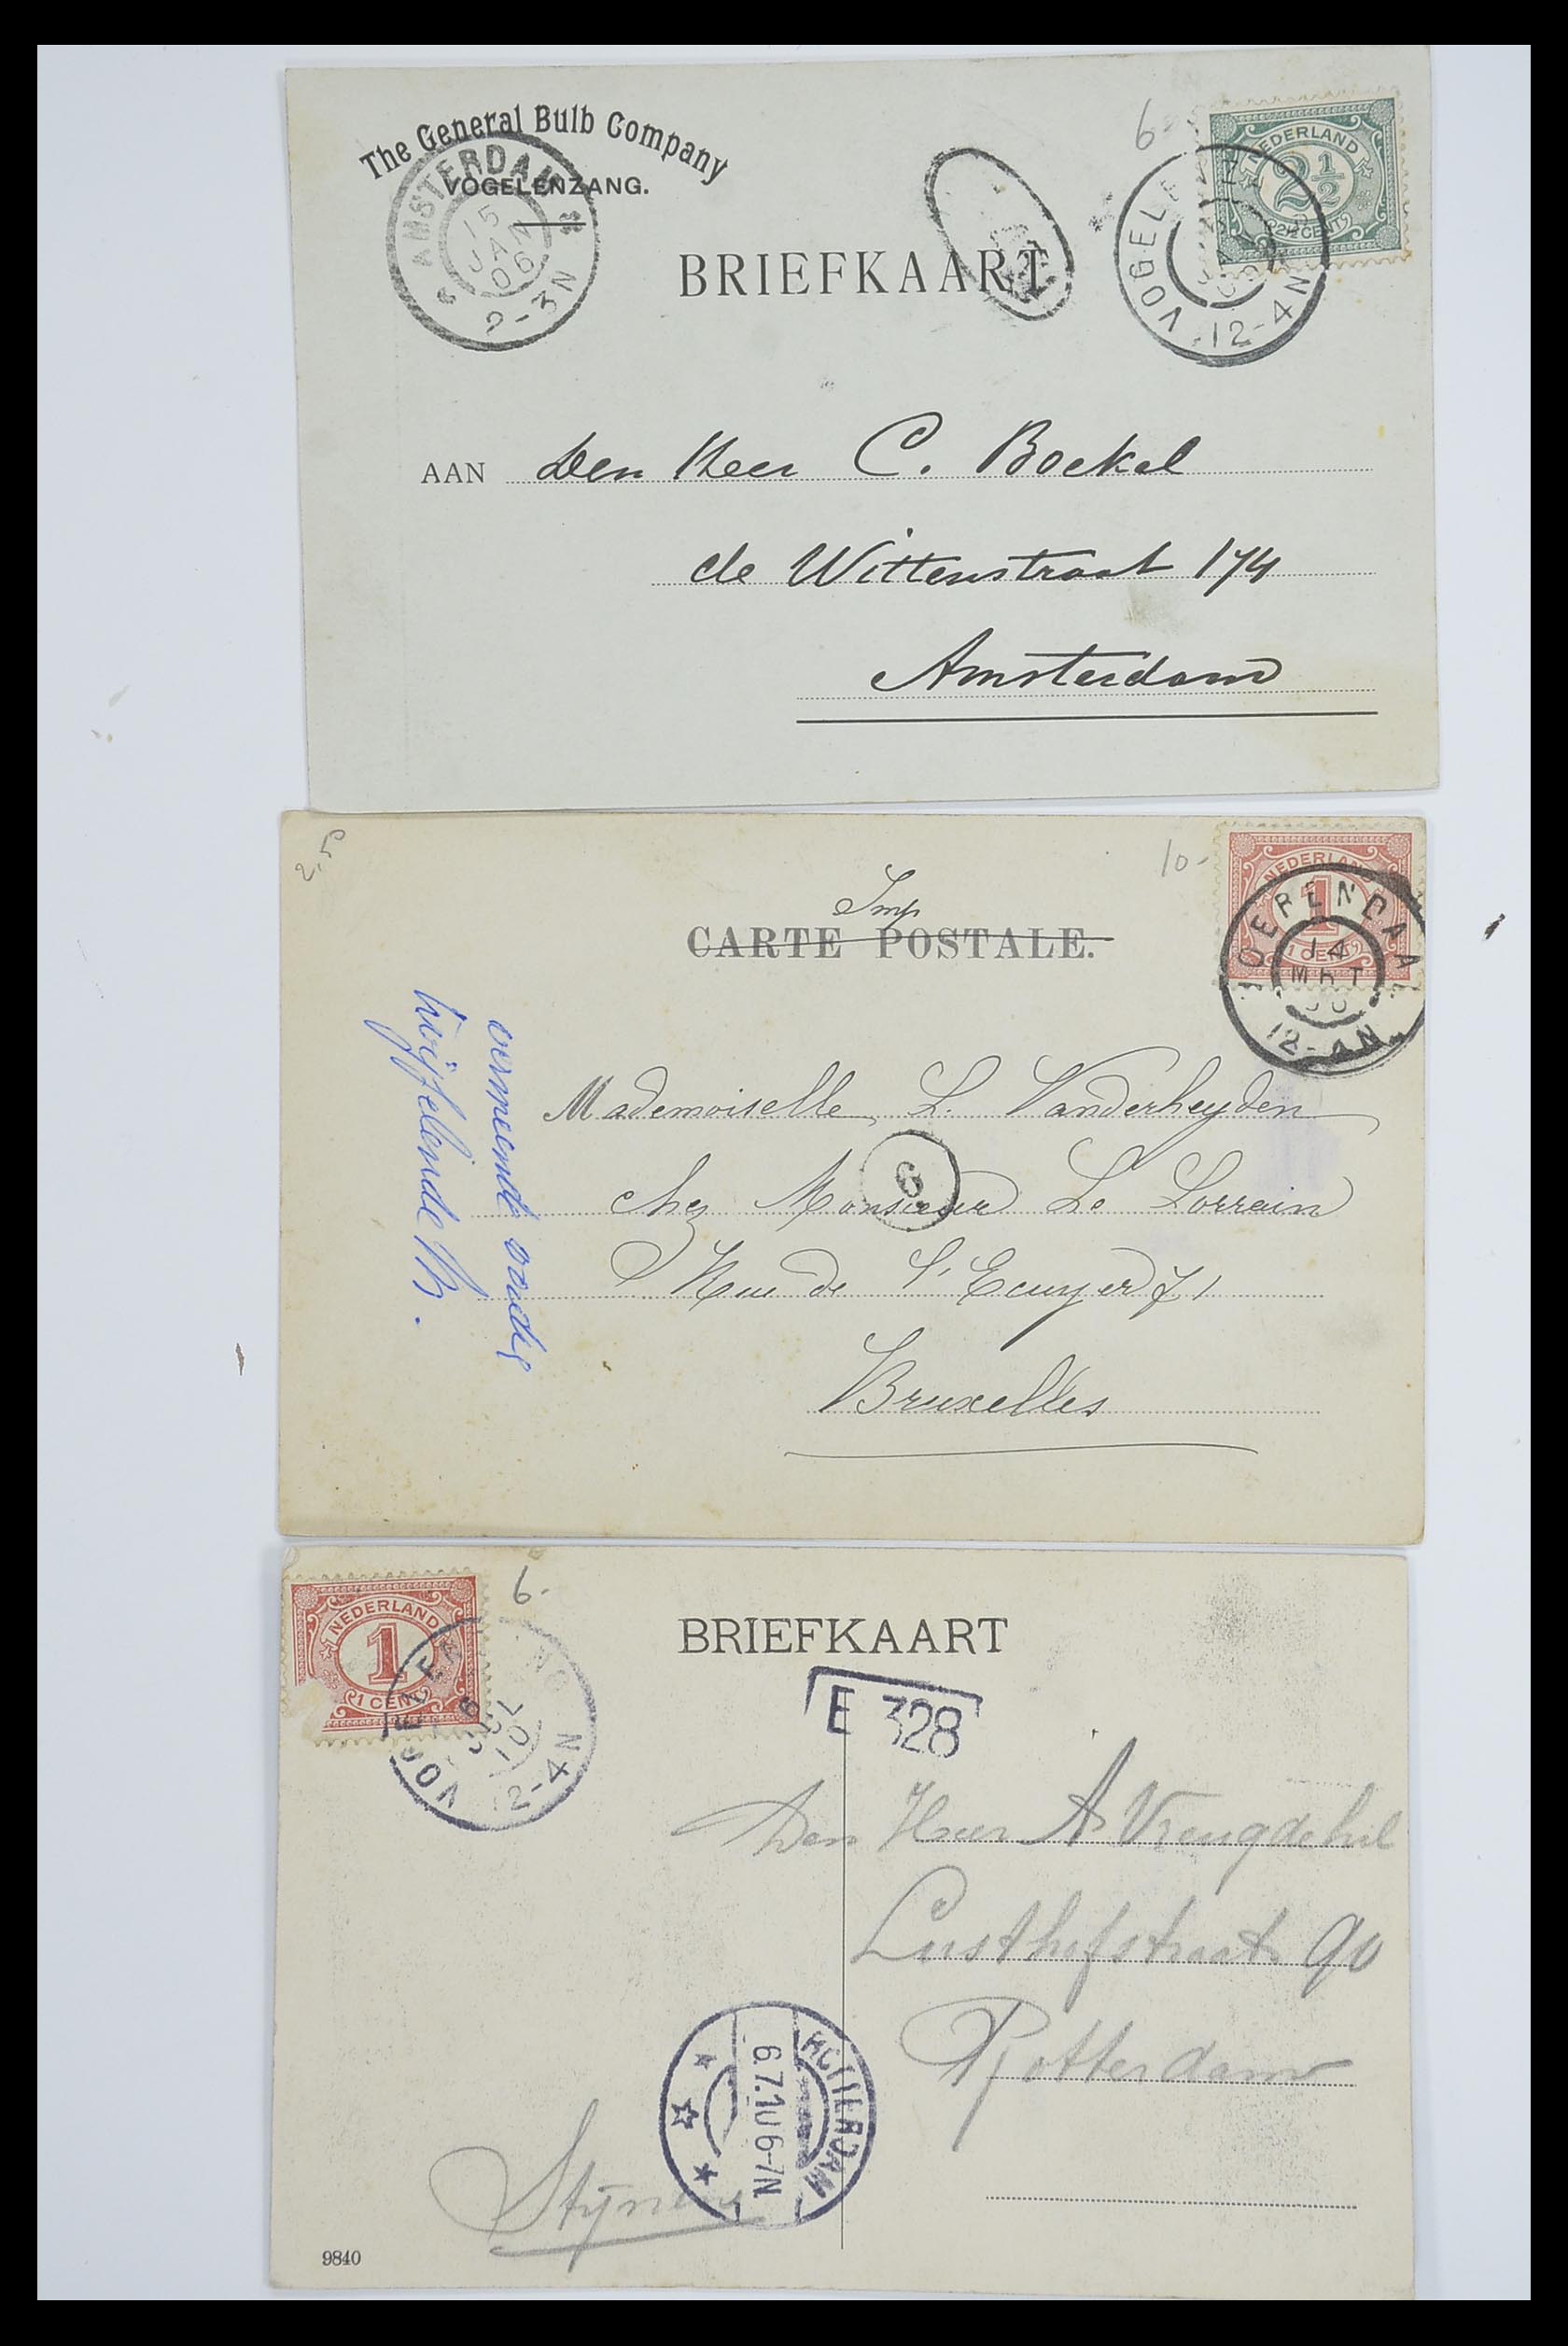 The General Bulb Company
VOGELENZANG.
AMSTERDAM
15
JAN
06
2-3N
6-
NEDERLAND
2½
2½ CENT
VOGELE
12-4N
BRIEFKAART
AAN Den Heer C. Boekel
de Wittenstraat 174
Amsterdam
2,50
10-
NEDERLAND
1
1 CENT
OERENDAA
14
MRT
12-4N
Imp
CARTE POSTALE.
Mademoiselle L. Vanderheyden
chez Monsieur Le Lorrain
6
Rue de l'Ecuyer 71
Bruxelles
twijfelende M.
6-
NEDERLAND
1
1 CENT
VOGELENZANG
6
JUL
10
12-4N
BRIEFKAART
E 328
Den Heer A Vreugdehil
Lusthofstraat 90
Rotterdam
ROTTERDAM
6.7.10 6-7N
9840